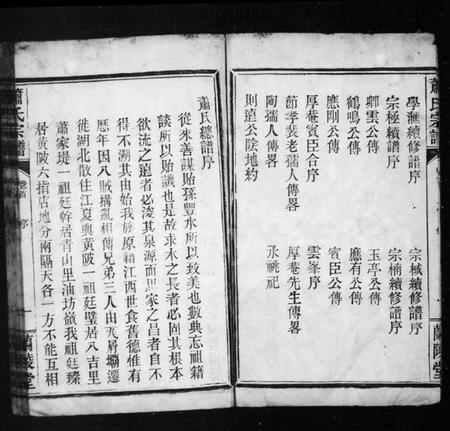 蕭氏宗譜
學瀜續修譜序
宗極續修譜序
卿雲公傳
鶴鳴公傳
應剛公傳
厚菴賓臣合序
節孝裴老孺人傳畧
陶孺人傳畧
則遠公陰地約
宗棫續修譜序
宗楠續修譜序
玉亭公傳
應有公傳
賓臣公傳
雲峯序
厚菴先生傳畧
永祧祀
蘭陵堂
蕭氏總譜序
從來善謀貽孫豐水所以致美也數典忘祖籍
談所以貽譏也是故求木之長者必固其根本
欲流之遠者必浚其泉源而思家之昌者自不
得不溯其由始我族原籍江西世食舊德惟有
歷年因八賊搆亂相傳兄弟三人由瓦屑壩遷
徙湖北散住江夏與黄陂一祖廷璧居八吉里
蕭家堤一祖廷幹居青山里油坊嶺我祖廷臻
居黄陂六指店地分兩隔天各一方不能互相
蕭氏宗譜
卷首
序
蘭陵堂